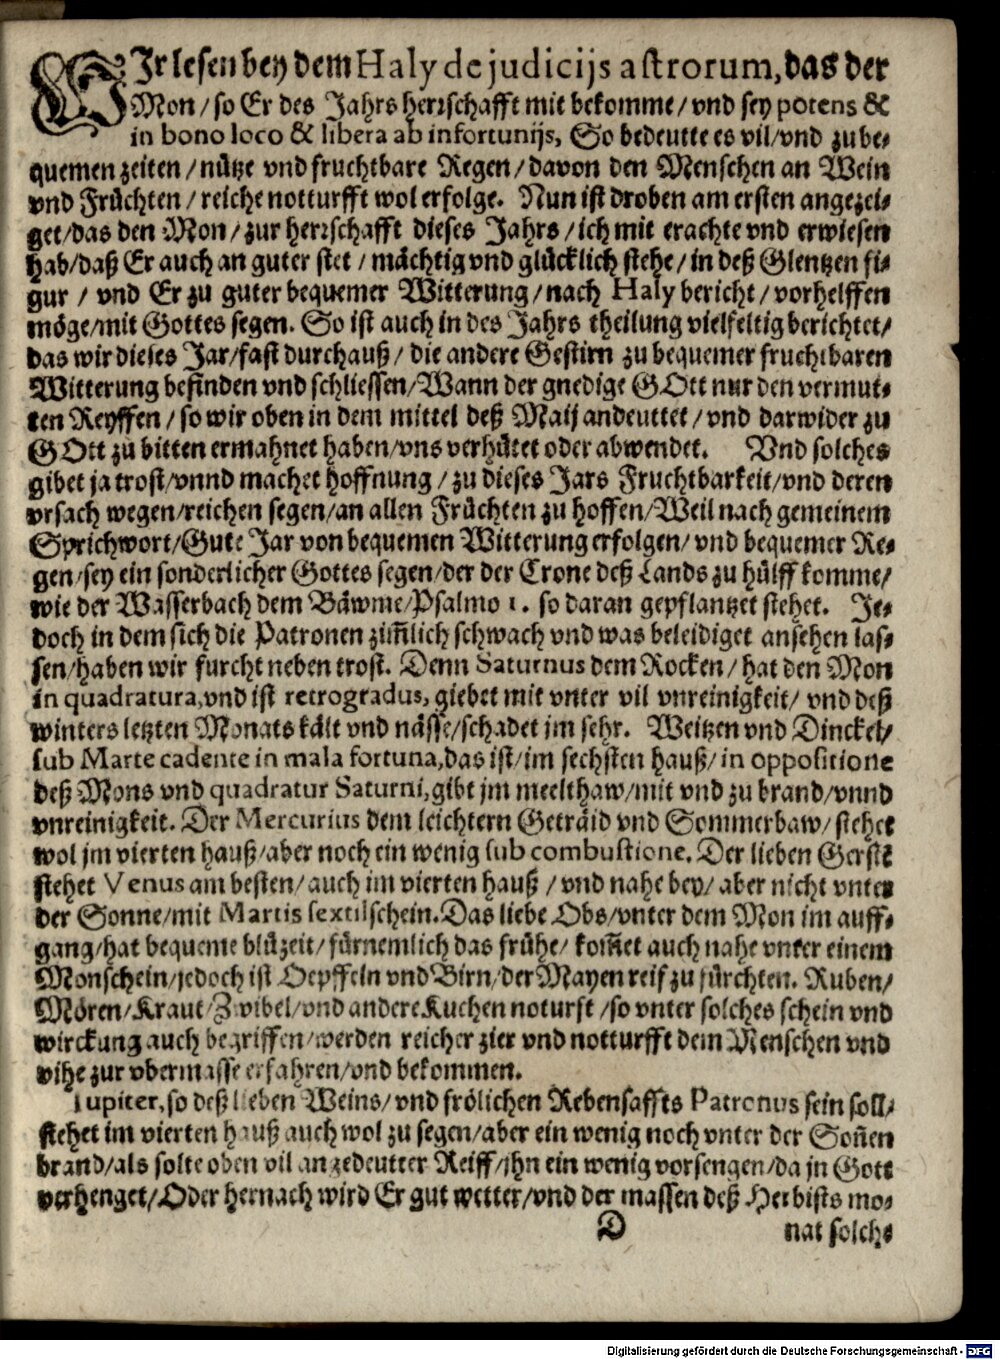 WIr lesen bey dem Haly de judicijs astrorum, das der
Mon / so Er des Jahrs herrschafft mit bekomme / vnd sey potens &
in bono loco & libera ab infortunijs, So bedeutte es vil / vnd zu be-
quemen zeiten / nütze vnd fruchtbare Regen / davon den Menschen an Wein
vnd Früchten / reiche notturfft wol erfolge. Nun ist droben am ersten angezei-
get / das den Mon / zur herrschafft dieses Jahrs / ich mit erachte vnd erwiesen
hab / daß Er auch an guter stet / mächtig vnd glücklich stehe / in deß Glentzen fi-
gur / vnd Er zu guter bequemer Witterung / nach Haly bericht / vorhelffen
möge / mit Gottes segen. So ist auch in des Jahrs theilung vielfeltig berichtet /
das wir dieses Jar / fast durchauß / die andere Gestirn zu bequemer fruchtbaren
Witterung befinden vnd schliessen / Wann der gnedige GOtt nur den vermut-
ten Reyffen / so wir oben in dem mittel deß Maij andeuttet / vnd darwider zu
GOtt zu bitten ermahnet haben / vns verhütet oder abwendet. Vnd solches
gibet ja trost / vnnd machet hoffnung / zu dieses Jars Fruchtbarkeit / vnd deren
vrsach wegen / reichen segen / an allen Früchten zu hoffen / Weil nach gemeinem
Sprichwort / Gute Jar von bequemen Witterung erfolgen / vnd bequemer Re-
gen / sey ein sonderlicher Gottes segen / der der Crone deß Lands zu hülff komme /
wie der Wasserbach dem Bäwme / Psalmo 1. so daran gepflantzet stehet. Je-
doch in dem sich die Patronen zim̃lich schwach vnd was beleidiget ansehen las-
sen / haben wir furcht neben trost. Denn Saturnus dem Rocken / hat den Mon
in quadratura, vnd ist retrogradus, giebet mit vnter vil vnreinigkeit / vnd deß
winters letzten Monats kält vnd nässe / schadet jm sehr. Weitzen vnd Dinckel /
sub Marte cadente in mala fortuna, das ist / im sechsten hauß / in oppositione
deß Mons vnd quadratur Saturni, gibt jm meelthaw / mit vnd zu brand / vnnd
vnreinigkeit. Der Mercurius dem leichtern Geträid vnd Sommerbaw / stehet
wol jm vierten hauß / aber noch ein wenig sub combustione. Der lieben Gerste
stehet Venus am besten / auch im vierten hauß / vnd nahe bey / aber nicht vnter
der Sonne / mit Martis sextilschein. Das liebe Obs / vnter dem Mon im auff-
gang / hat bequeme blüzeit / fürnemlich das frühe / kom̃et auch nahe vnter einem
Monschein / jedoch ist Oepffeln vnd Birn / der Mayen reif zu fürchten. Ruben /
Mören / Kraut / Zwibel / vnd andere Kuchen noturft / so vnter solches schein vnd
wirckung auch begriffen / werden reicher zier vnd notturfft dem Menschen vnd
vihe zur vbermasse erfahren / vnd bekommen.
Jupiter, so deß lieben Weins / vnd frölichen Rebensaffts Patronus sein soll /
stehet im vierten hauß auch wol zu segen / aber ein wenig noch vnter der Son̄en
brand / als solte oben vil angedeutter Reiff / jhn ein wenig vorsengen / da jn Gott
verhenget / Oder hernach wird Er gut wetter / vnd der massen deß Herbists mo-
D nat solche
Digitalisierung gefördert durch die Deutsche Forschungsgemeinschaft - DFG